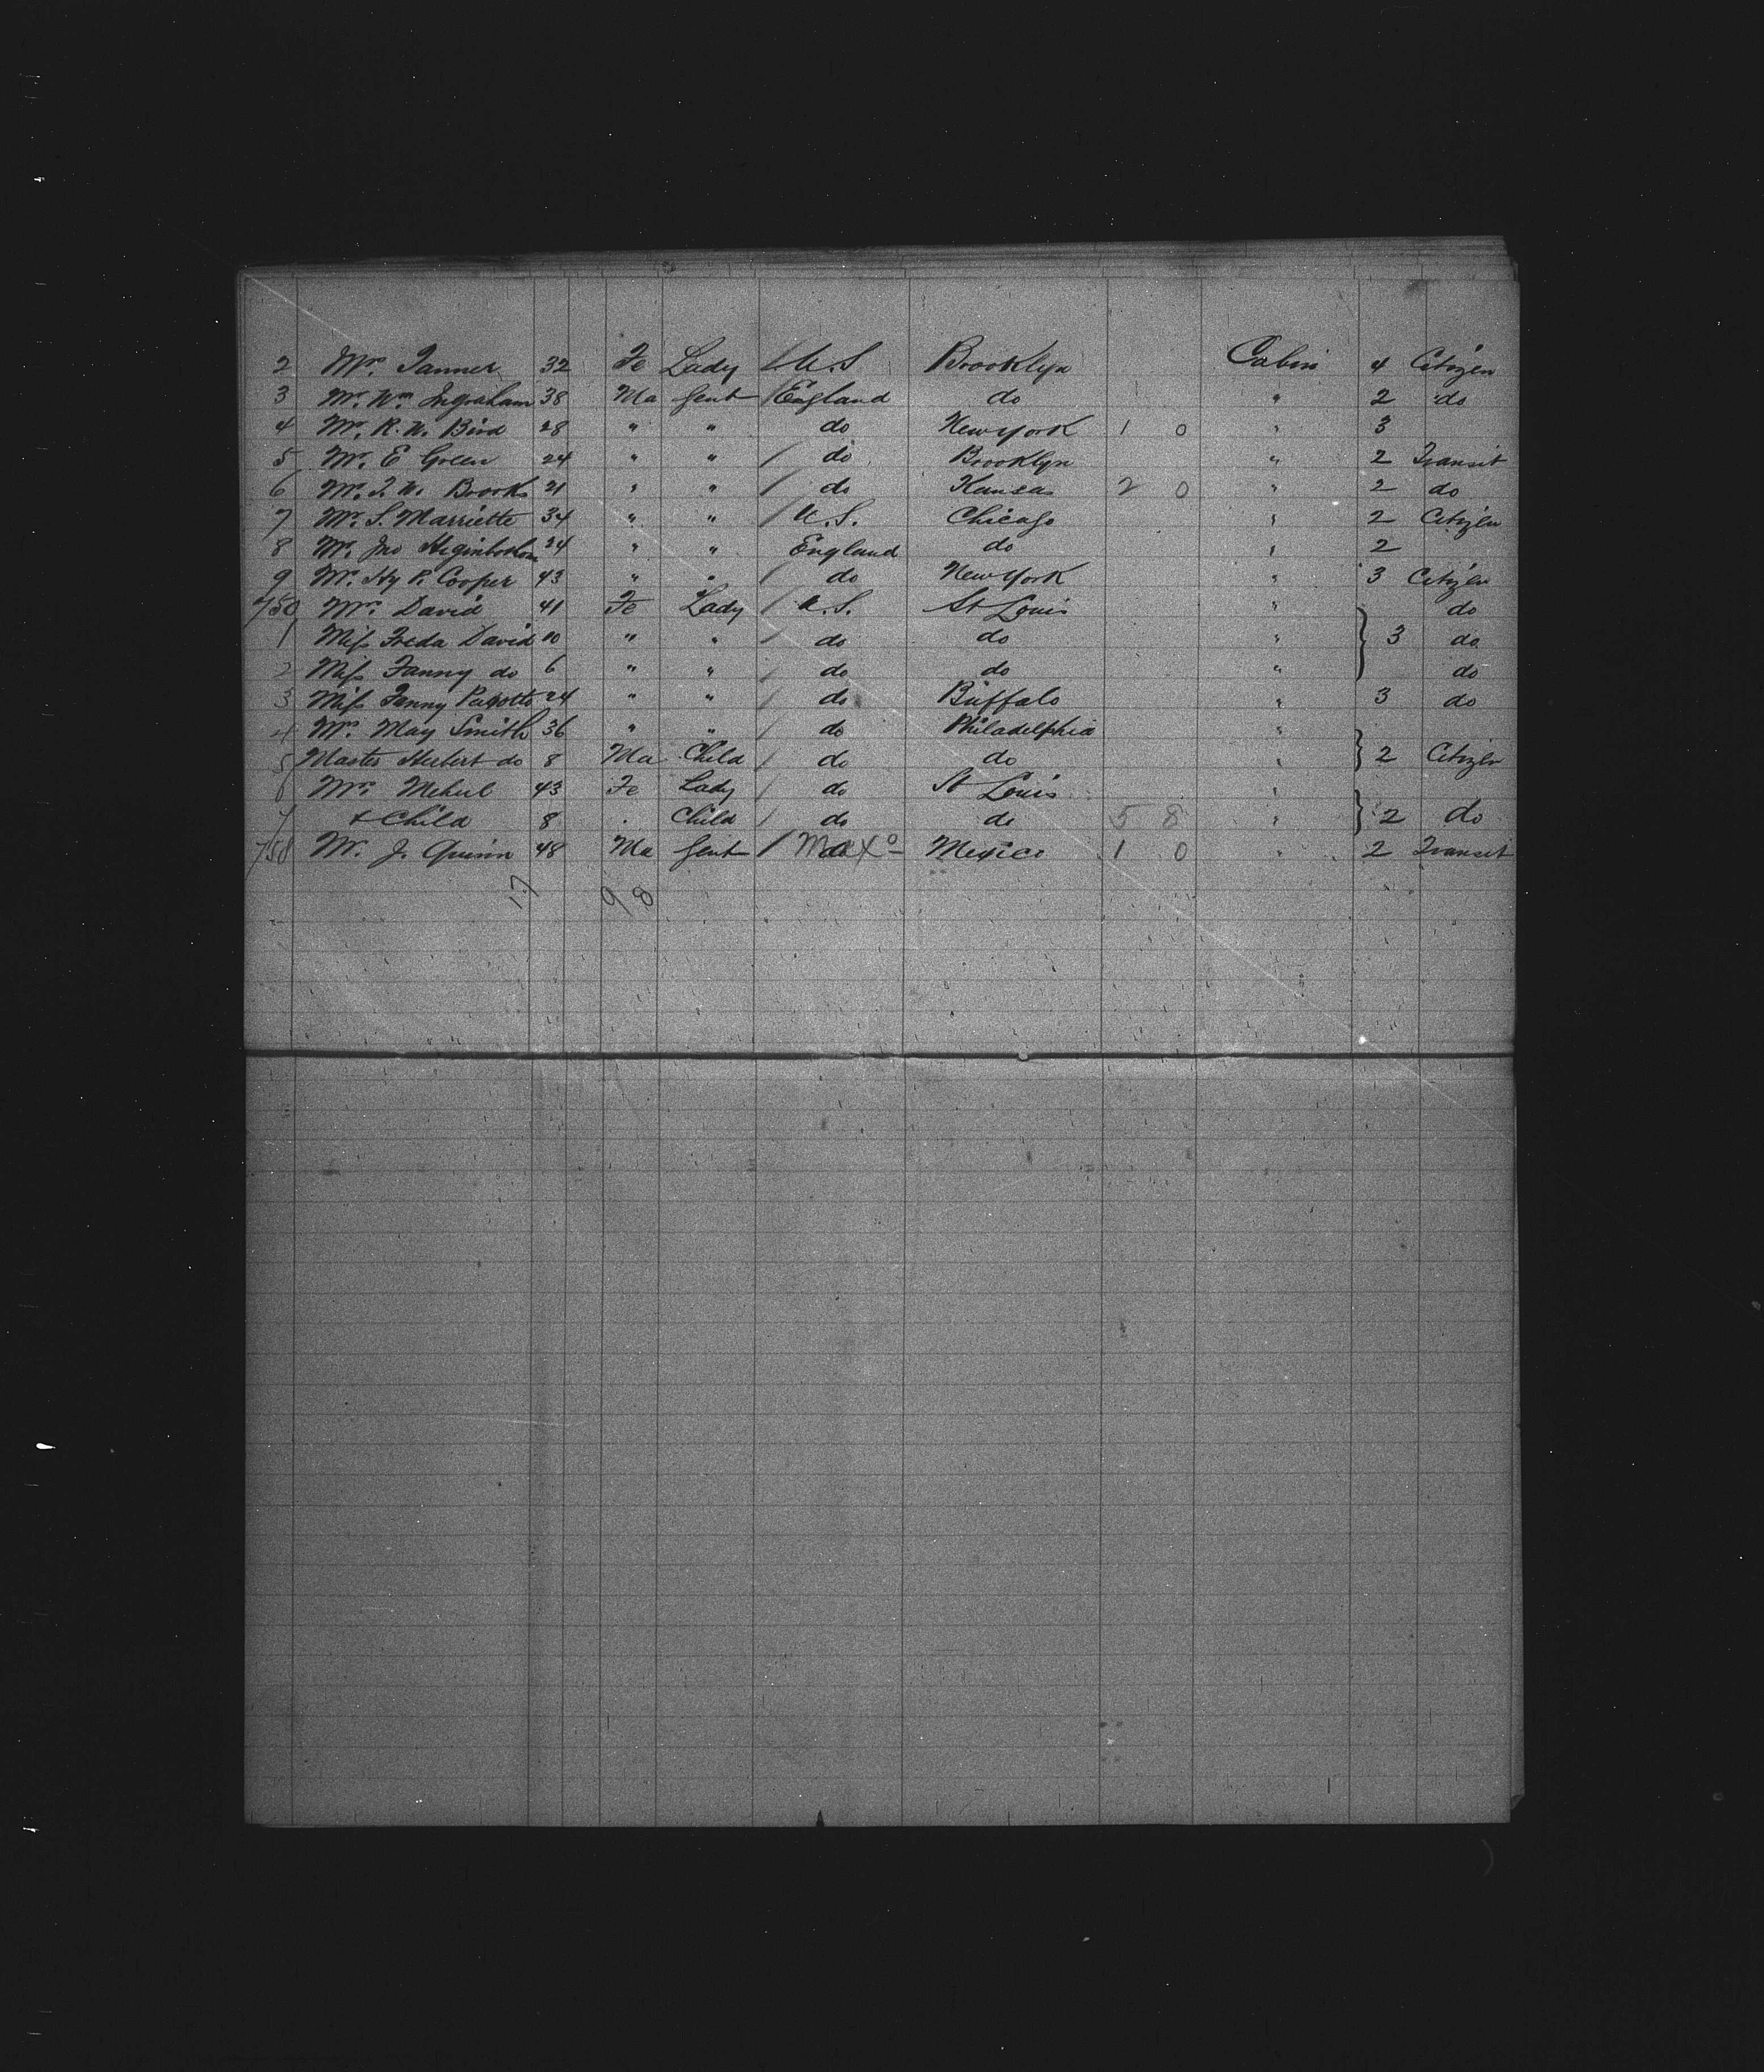 2 Mrs. Tanner 32 Fe Lady / U.S Brooklyn Cabin 4 Citizen
3 Mr. Wm. Ingraham 38 Ma Gent / England do " 2 do
4 Mr. R. W. Bird 28 " " do New York 1 0 " 3
5 Mr. E Green 24 " " / do Brooklyn " 2 Transit
6 Mr. J. W. Brooks 21 " " / do Kansas 2 0 " 2 do
7 Mr. S. Marriette 34 " " / U.S. Chicago " 2 Citizen
8 Mr. Jno Higinbothom 24 " " England do " 2
9 Mr. Hy P. Cooper 43 " " / do New York " 3 Citizen
750 Mrs. David 41 Fe Lady / U.S. St Louis " do
1 Miss Freda David 10 " " / do do " 3 do
2 Miss Fanny do 6 " " / do do " do
3 Miss Fanny 24 " " / do Buffalo " 3 do
4 Mrs. May Smith 36 " " / do Philadelphia "
5 Master Herbert do 8 Ma Child / do do " 2 Citizen
6 Mrs. 43 Fe Lady / do St Louis "
7 & Child 8 . Child / do do 5 8 " 2 do
758 Mr. J. Quinn 48 Ma Gent / Mexo Mexico 1 0 " 2 Transit
17 9 8